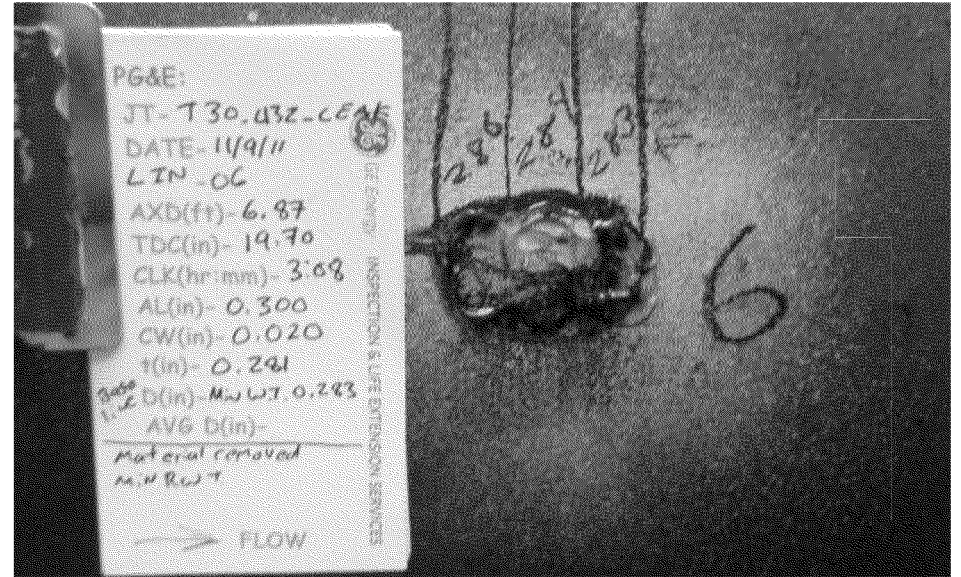 PG&E:
JT- T30.032_LEAK
DATE- 11/9/11
LIN -06
AXD(ft)- 6.87
TDC(in)- 19.70
CLK(hr:mm)- 3:08
AL(in)- 0.300
CW(in)- 0.020
t(in)- 0.281
D(in)- MIN WT 0.283
AVG D(in)-
Material removed
MIN RWT
FLOW
GE Energy INSPECTION & LIFE EXTENSION SERVICES
286
283
6